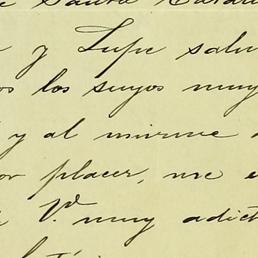 y Lupe salu
os los suyos muy
y al mismo
or placer, me
Vd. muy adict